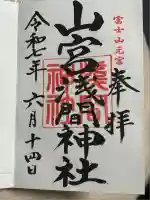 富士山元宮
奉拝
山宮浅間神社
令和七年六月十四日